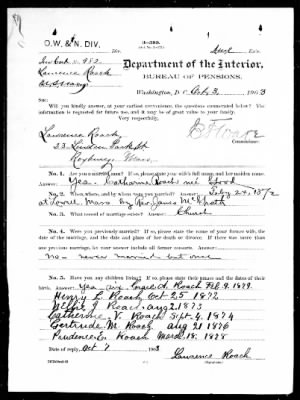 O.W. & N. DIV.
3-389.
Lawrence Roach
Department of the Interior,
BUREAU OF PENSIONS.
Washington, D. C., Oct 2, 1903
Sir:
Will you kindly answer, at your earliest convenience, the questions enumerated below? The
information is requested for future use, and it may be of great value to your family.
Very respectfully,
Lawrence Roach
23 Linden Park St
Roxbury Mass.
Commissioner.
No. 1. Are you a married man? If so, please state your wife's full name and her maiden name.
Answer: Yes. Catharine Roach nee Hood
No. 2. When, where, and by whom were you married? Answer: Feby 24, 1872
at Lowell, Mass by Rev. James McGrath
No. 3. What record of marriage exists? Answer: Church
No. 4. Were you previously married? If so, please state the name of your former wife, the
date of the marriage, and the date and place of her death or divorce. If there was more than
one previous marriage, let your answer include all former consorts. Answer:
no - never married but once
No. 5. Have you any children living? If so, please state their names and the dates of their
birth. Answer: Yes six. Roach Feb. 9. 1879.
Henry L. Roach Oct 25 1872
Nellie J Roach Aug 2 1873
Catherine V. Roach Sept. 4, 1874
Gertrude M. Roach Aug 21 1876
Prudence L. Roach March 18, 1878
Date of reply, Oct 7, 1903
Lawrence Roach